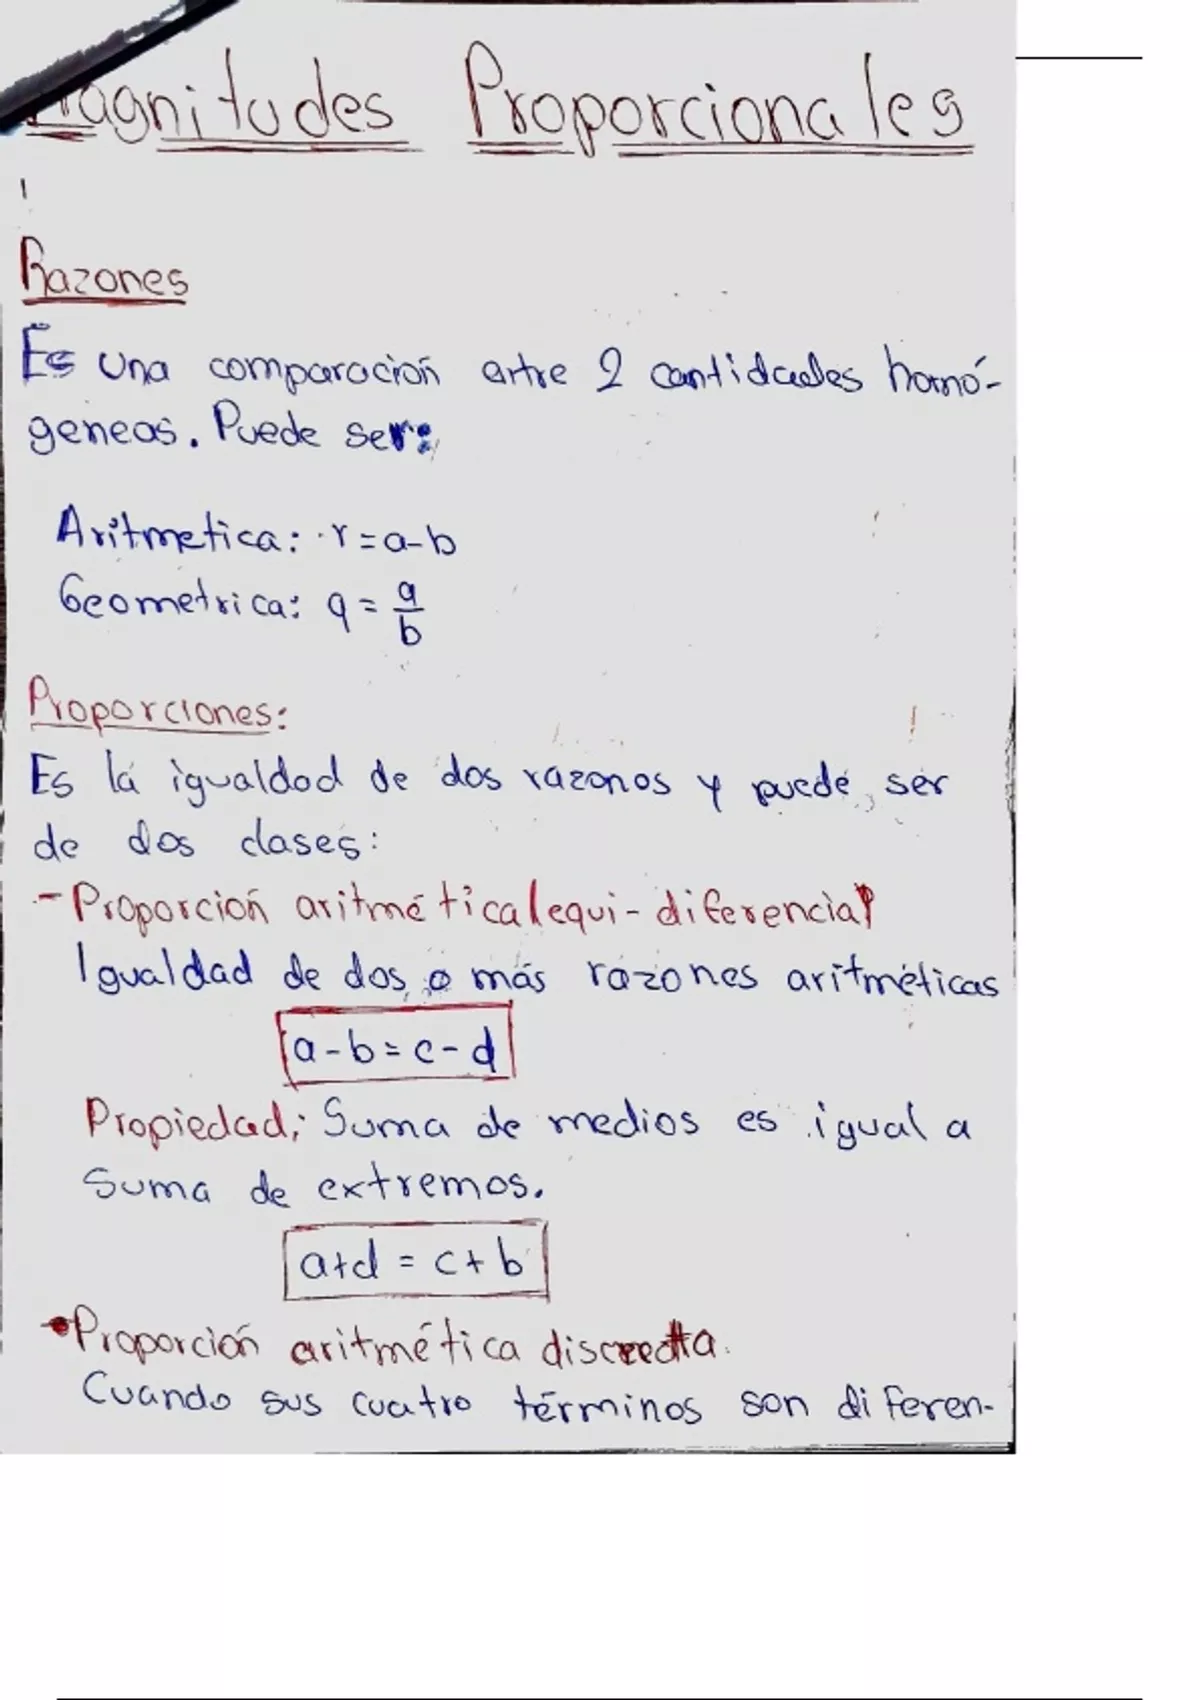 Magnitudes Proporcionales
Razones
Es una comparación entre 2 cantidades homó-
geneas. Puede ser:
Aritmetica: r=a-b
Geometrica: q = a/b
Proporciones:
Es la igualdad de dos razones y puede ser
de dos clases:
- Proporción aritmética (equi-diferencia)
Igualdad de dos o más razones aritméticas
a-b=c-d
Propiedad: Suma de medios es igual a
suma de extremos.
a+d = c+b
• Proporción aritmética discreta.
Cuando sus cuatro términos son diferen-